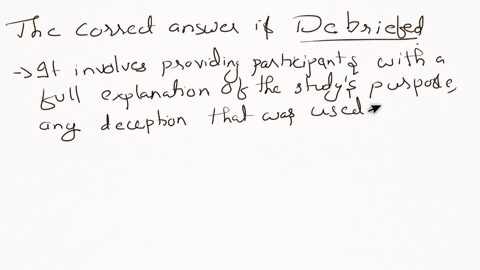 The correct answer is Debriefed
→ It involves providing participants with a
full explanation of the study's purpose,
any deception that was used